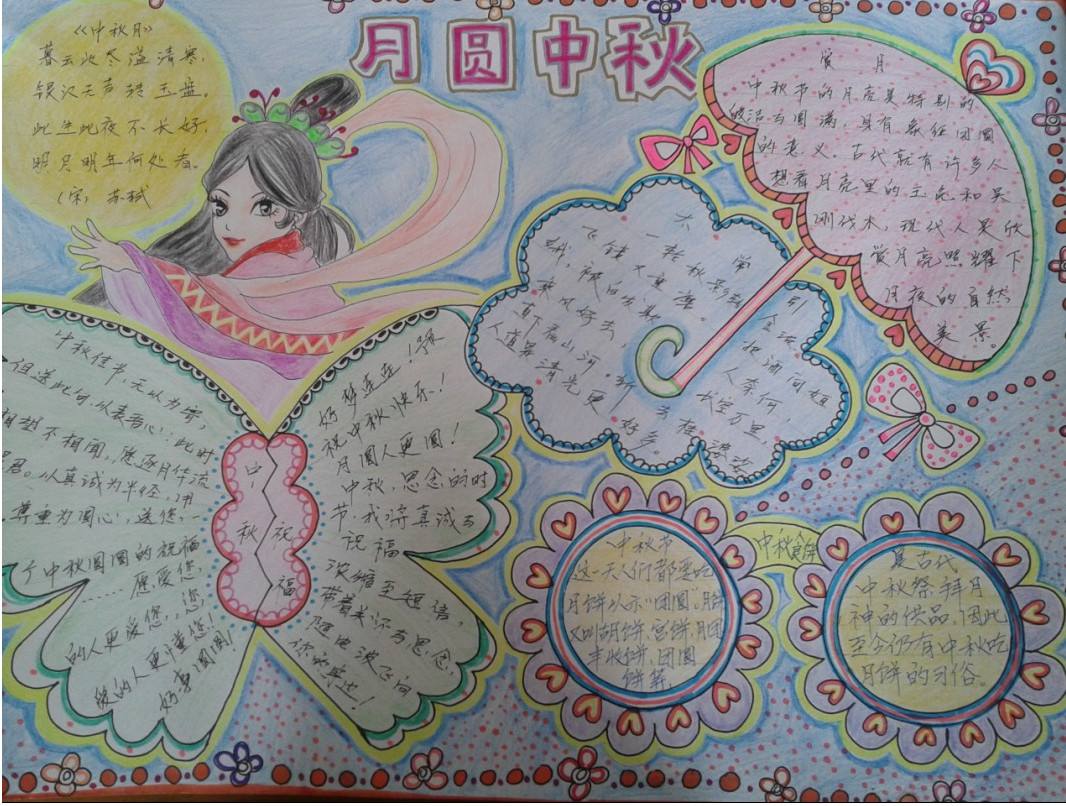 月圆中秋
《中秋月》
暮云收尽溢清寒，
银汉无声转玉盘。
此生此夜不长好，
明月明年何处看。
（宋）苏轼
赏月
中秋节的月亮是特别的
皎洁与圆满，具有象征团圆
的意义。古代就有许多人
想看月亮里的玉兔和吴
刚伐木，现代人是欣
赏月亮照耀下
月夜的自然
美景。
一轮秋影转金波
飞镜又重磨
把酒问姮
被白发
人奈何
乘风好去，
长空万里，
直下看山河。
斫去桂婆娑
人道是
清光更
好多
中秋佳节，无以为寄，
但送此句，以表吾心：此时
相望不相闻，愿逐月华流
君。以真诚为半径，用
尊重为圆心，送您
个中秋圆圆的祝福
愿爱您
的人更爱您，您
爱的人更懂您！
好事圆圆！
好梦连连！
祝中秋快乐！
月圆人更圆！
中秋，思念的时
节，我将真诚与
祝福
浓缩至短语，
带着关怀与思念，
随电波飞向
你的身边！
中秋
祝福
中秋节
这一天人们都要吃
月饼以示“团圆”。月饼
又叫胡饼、宫饼、月团
丰收饼、团圆
饼等。
中秋食俗
是古代
中秋祭拜月
神的供品，因此
至今仍有中秋吃
月饼的习俗。